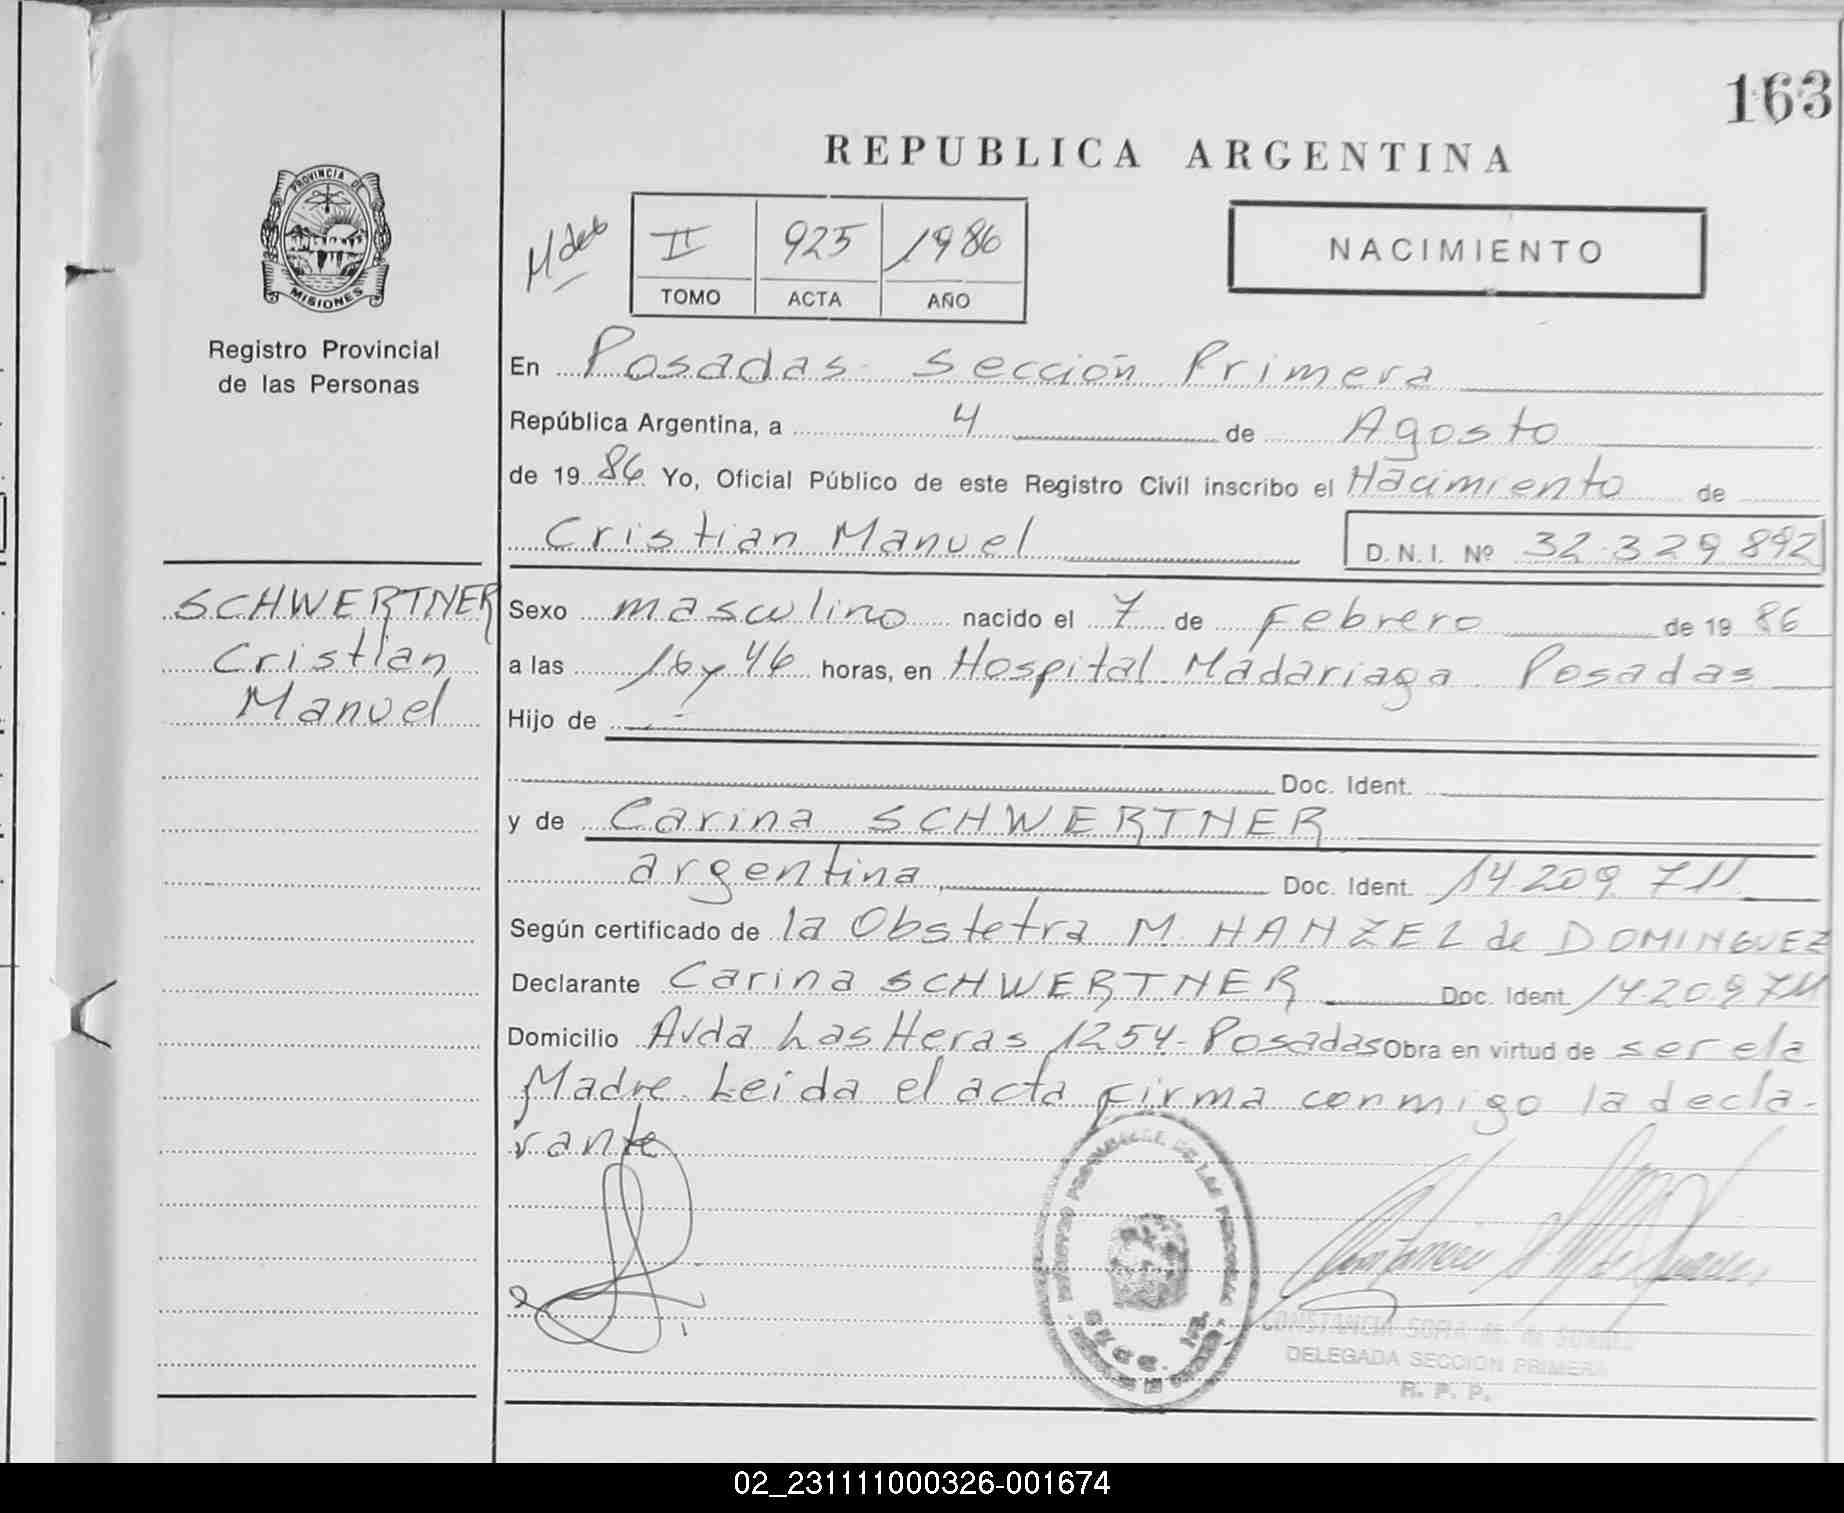 163
REPUBLICA ARGENTINA
PROVINCIA DE
MISIONES
Registro Provincial
de las Personas
II 925 1986
TOMO ACTA AÑO
NACIMIENTO
En Posadas Sección Primera
República Argentina, a 4 de Agosto
de 1986 Yo, Oficial Público de este Registro Civil inscribo el Nacimiento de
Cristian Manuel D.N.I. Nº 32.329.892
SCHWERTNER
Cristian
Manuel
Sexo masculino nacido el 7 de Febrero de 1986
a las 16 y 46 horas, en Hospital Madariaga Posadas
Hijo de
Doc. Ident.
y de Carina SCHWERTNER
argentina, Doc. Ident. 14.209.711
Según certificado de la Obstetra M. HANZEL de DOMINGUEZ
Declarante Carina SCHWERTNER Doc. Ident. 14.209.711
Domicilio Avda Las Heras 1254 - Posadas Obra en virtud de ser ela
Madre. Leida el acta firma conmigo la decla-
rante
CONSTANCIA SOFIA M. de
DELEGADA SECCION PRIMERA
R. P. P.
02_231111000326-001674